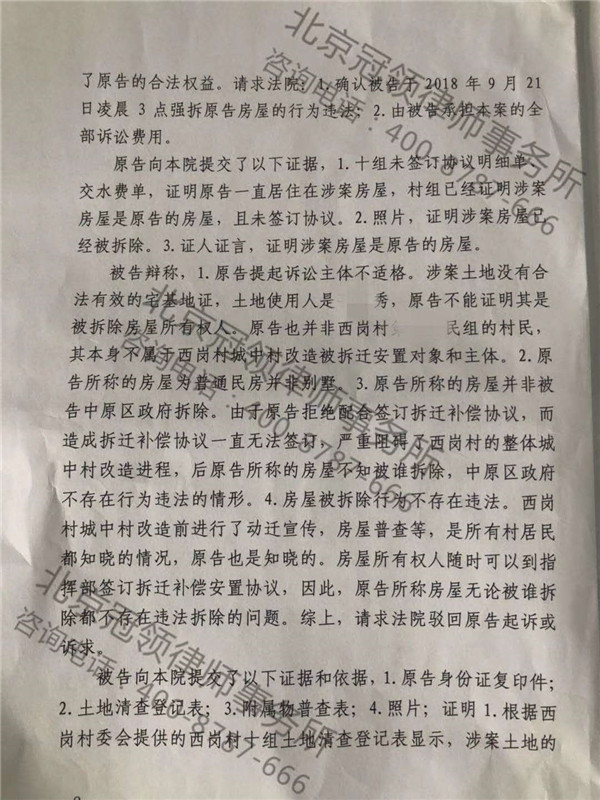 了原告的合法权益。请求法院：1.确认被告于 2018 年 9 月 21
日凌晨 3 点强拆原告房屋的行为违法；2.由被告承担本案的全
部诉讼费用。
原告向本院提交了以下证据，1.十组未签订协议明细单、
交水费单，证明原告一直居住在涉案房屋，村组已经证明涉案
房屋是原告的房屋，且未签订协议。2.照片，证明涉案房屋已
经被拆除。3.证人证言，证明涉案房屋是原告的房屋。
被告辩称，1.原告提起诉讼主体不适格。涉案土地没有合
法有效的宅基地证，土地使用人是 秀，原告不能证明其是
被拆除房屋所有权人。原告也并非西岗村 民组的村民，
其本身不属于西岗村城中村改造被拆迁安置对象和主体。2.原
告所称的房屋为普通民房并非别墅。3.原告所称的房屋并非被
告中原区政府拆除。由于原告拒绝配合签订拆迁补偿协议，而
造成拆迁补偿协议一直无法签订，严重阻碍了西岗村的整体城
中村改造进程，后原告所称的房屋不知被谁拆除，中原区政府
不存在行为违法的情形。4.房屋被拆除行为不存在违法。西岗
村城中村改造前进行了动迁宣传，房屋普查等，是所有村居民
都知晓的情况，原告也是知晓的。房屋所有权人随时可以到指
挥部签订拆迁补偿安置协议，因此，原告所称房屋无论被谁拆
除都不存在违法拆除的问题。综上，请求法院驳回原告起诉或
诉求。
被告向本院提交了以下证据和依据，1.原告身份证复印件；
2.土地清查登记表；3.附属物普查表；4.照片；证明 1.根据西
岗村委会提供的西岗村十组土地清查登记表显示，涉案土地的
北京冠领律师事务所
咨询电话：400-8787-666
北京冠领律师事务所
咨询电话：400-8787-666
北京冠领律师事务所
咨询电话：400-8787-666